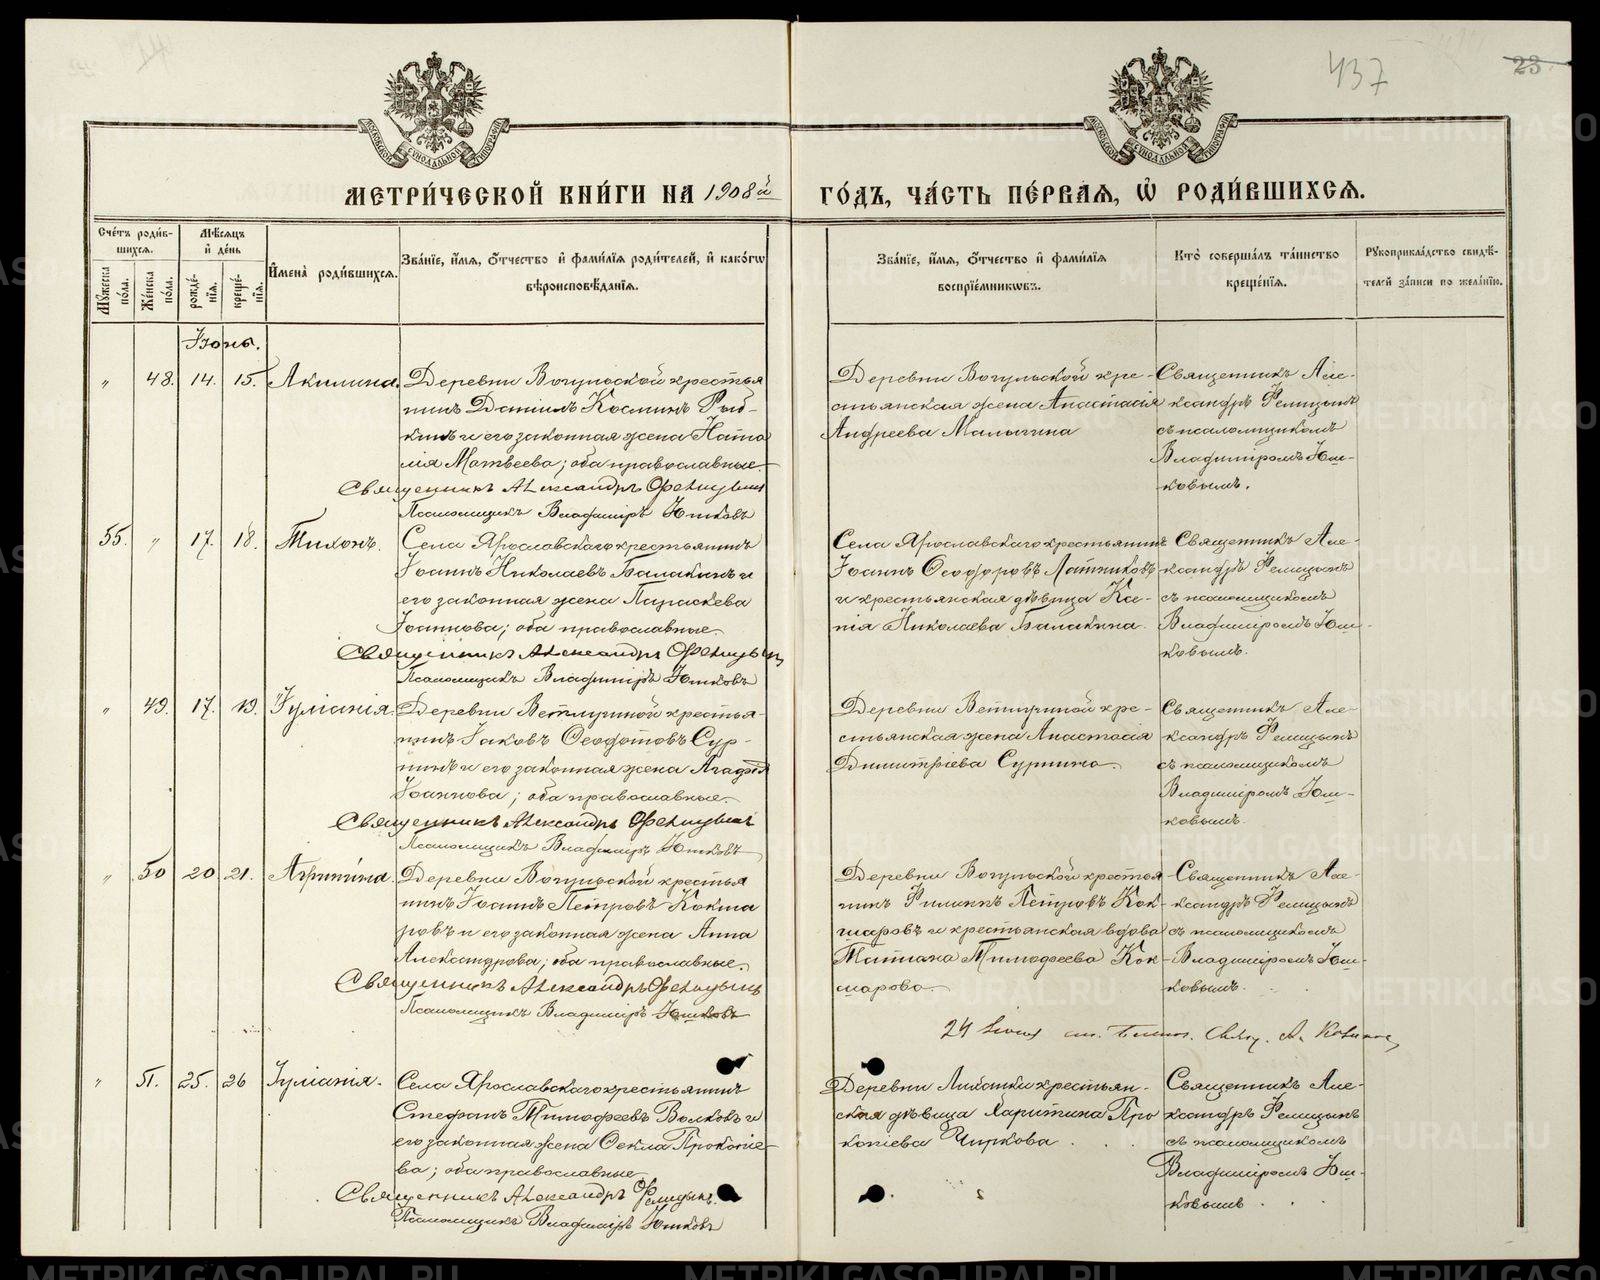 437
23
МОСКОВСКОЙ СѴНОДАЛЬНОЙ ТИПОГРАФІИ
МОСКОВСКОЙ СѴНОДАЛЬНОЙ ТИПОГРАФІИ
МЕТРИ́ЧЕСКОЙ КНИ́ГИ НА 1908й ГО́ДЪ, ЧА́СТЬ ПЕ́РВАЯ, Ѡ РОДИ́ВШИХСЯ.
Сче́тъ роди́вшихся.
Мꙋ́жеска по́ла.
Же́нска по́ла.
Мѣ́сяцъ и де́нь
рожде́нїя.
креще́нїя.
И҆мена̀ роди́вшихся.
Зва́нїе, и҆́мя, ѻ҆́тчество и҆ фами́лїя роди́телей, и҆ како́гѡ вѣроисповѣ́данїя.
Зва́нїе, и҆́мя, ѻ҆́тчество и҆ фами́лїя воспрїе́мникѡвъ.
Кто̀ соверша́лъ та́инство креще́нїя.
Рꙋкоприкла́дство свидѣ́телей за́писи по жела́нїю.
Іюнь.
" 48. 14. 15. Акилина.
Деревни Вогульской крестья
нинъ Даніилъ Космин Рыб-
кинъ и его законная жена Ната
лія Матвеева; оба православные.
Священникъ Александръ Фелицынъ
Псаломщикъ Владиміръ Юшковъ
Деревни Вогульской кре-
стьянская жена Анастасія
Андреева Малыгина
Священникъ Але-
ксандръ Фелицынъ
съ псаломщикомъ
Владиміромъ Юш-
ковымъ.
55. " 17. 18. Тихонъ.
Села Ярославскаго крестьянинъ
Іоаннъ Николаевъ Балакинъ и
его законная жена Параскева
Іоаннова; оба православные.
Священникъ Александръ Фелицынъ
Псаломщикъ Владиміръ Юшковъ
Села Ярославскаго крестьянинъ
Іоаннъ Ѳеодоровъ Латниковъ
и крестьянская дѣвица Ка-
пія Николаева Балакина.
Священникъ Але-
ксандръ Фелицынъ
съ псаломщикомъ
Владиміромъ Юш-
ковымъ.
" 49. 17. 19. Іуліанія.
Деревни Ветлугиной крестья-
нинъ Іаковъ Ѳеодотовъ Сур-
нинъ и его законная жена Агафія
Іоаннова; оба православные.
Священникъ Александръ Фелицынъ
Псаломщикъ Владиміръ Юшковъ
Деревни Ветлугиной кре-
стьянская жена Анастасія
Димитріева Сурнина.
Священникъ Але-
ксандръ Фелицынъ
съ псаломщикомъ
Владиміромъ Юш-
ковымъ.
" 50 20 21. Агрипина.
Деревни Вогульской крестья
нинъ Іоаннъ Петровъ Кокша
ровъ и его законная жена Анна
Александрова; оба православные.
Священникъ Александръ Фелицынъ
Псаломщикъ Владиміръ Юшковъ
Деревни Вогульской крестья
нинъ Филиппъ Петровъ Кок-
шаровъ и крестьянская вдова
Татіана Тимофеева Кок-
шарова.
Священникъ Але-
ксандръ Фелицынъ
съ псаломщикомъ
Владиміромъ Юш-
ковымъ.
24
" 51. 25. 26 Іуліанія.
Села Ярославскаго крестьянинъ
Стефанъ Тимофеевъ Волковъ и
его законная жена Ѳекла Прокопіе-
ва; оба православные.
Священникъ Александръ Фелицынъ
Псаломщикъ Владиміръ Юшковъ
Деревни крестьян-
ская дѣвица Харитина Про
копіева Чиркова.
Священникъ Але-
ксандръ Фелицынъ
съ псаломщикомъ
Владиміромъ Юш-
ковымъ
METRIKI.GASO-URAL.RU